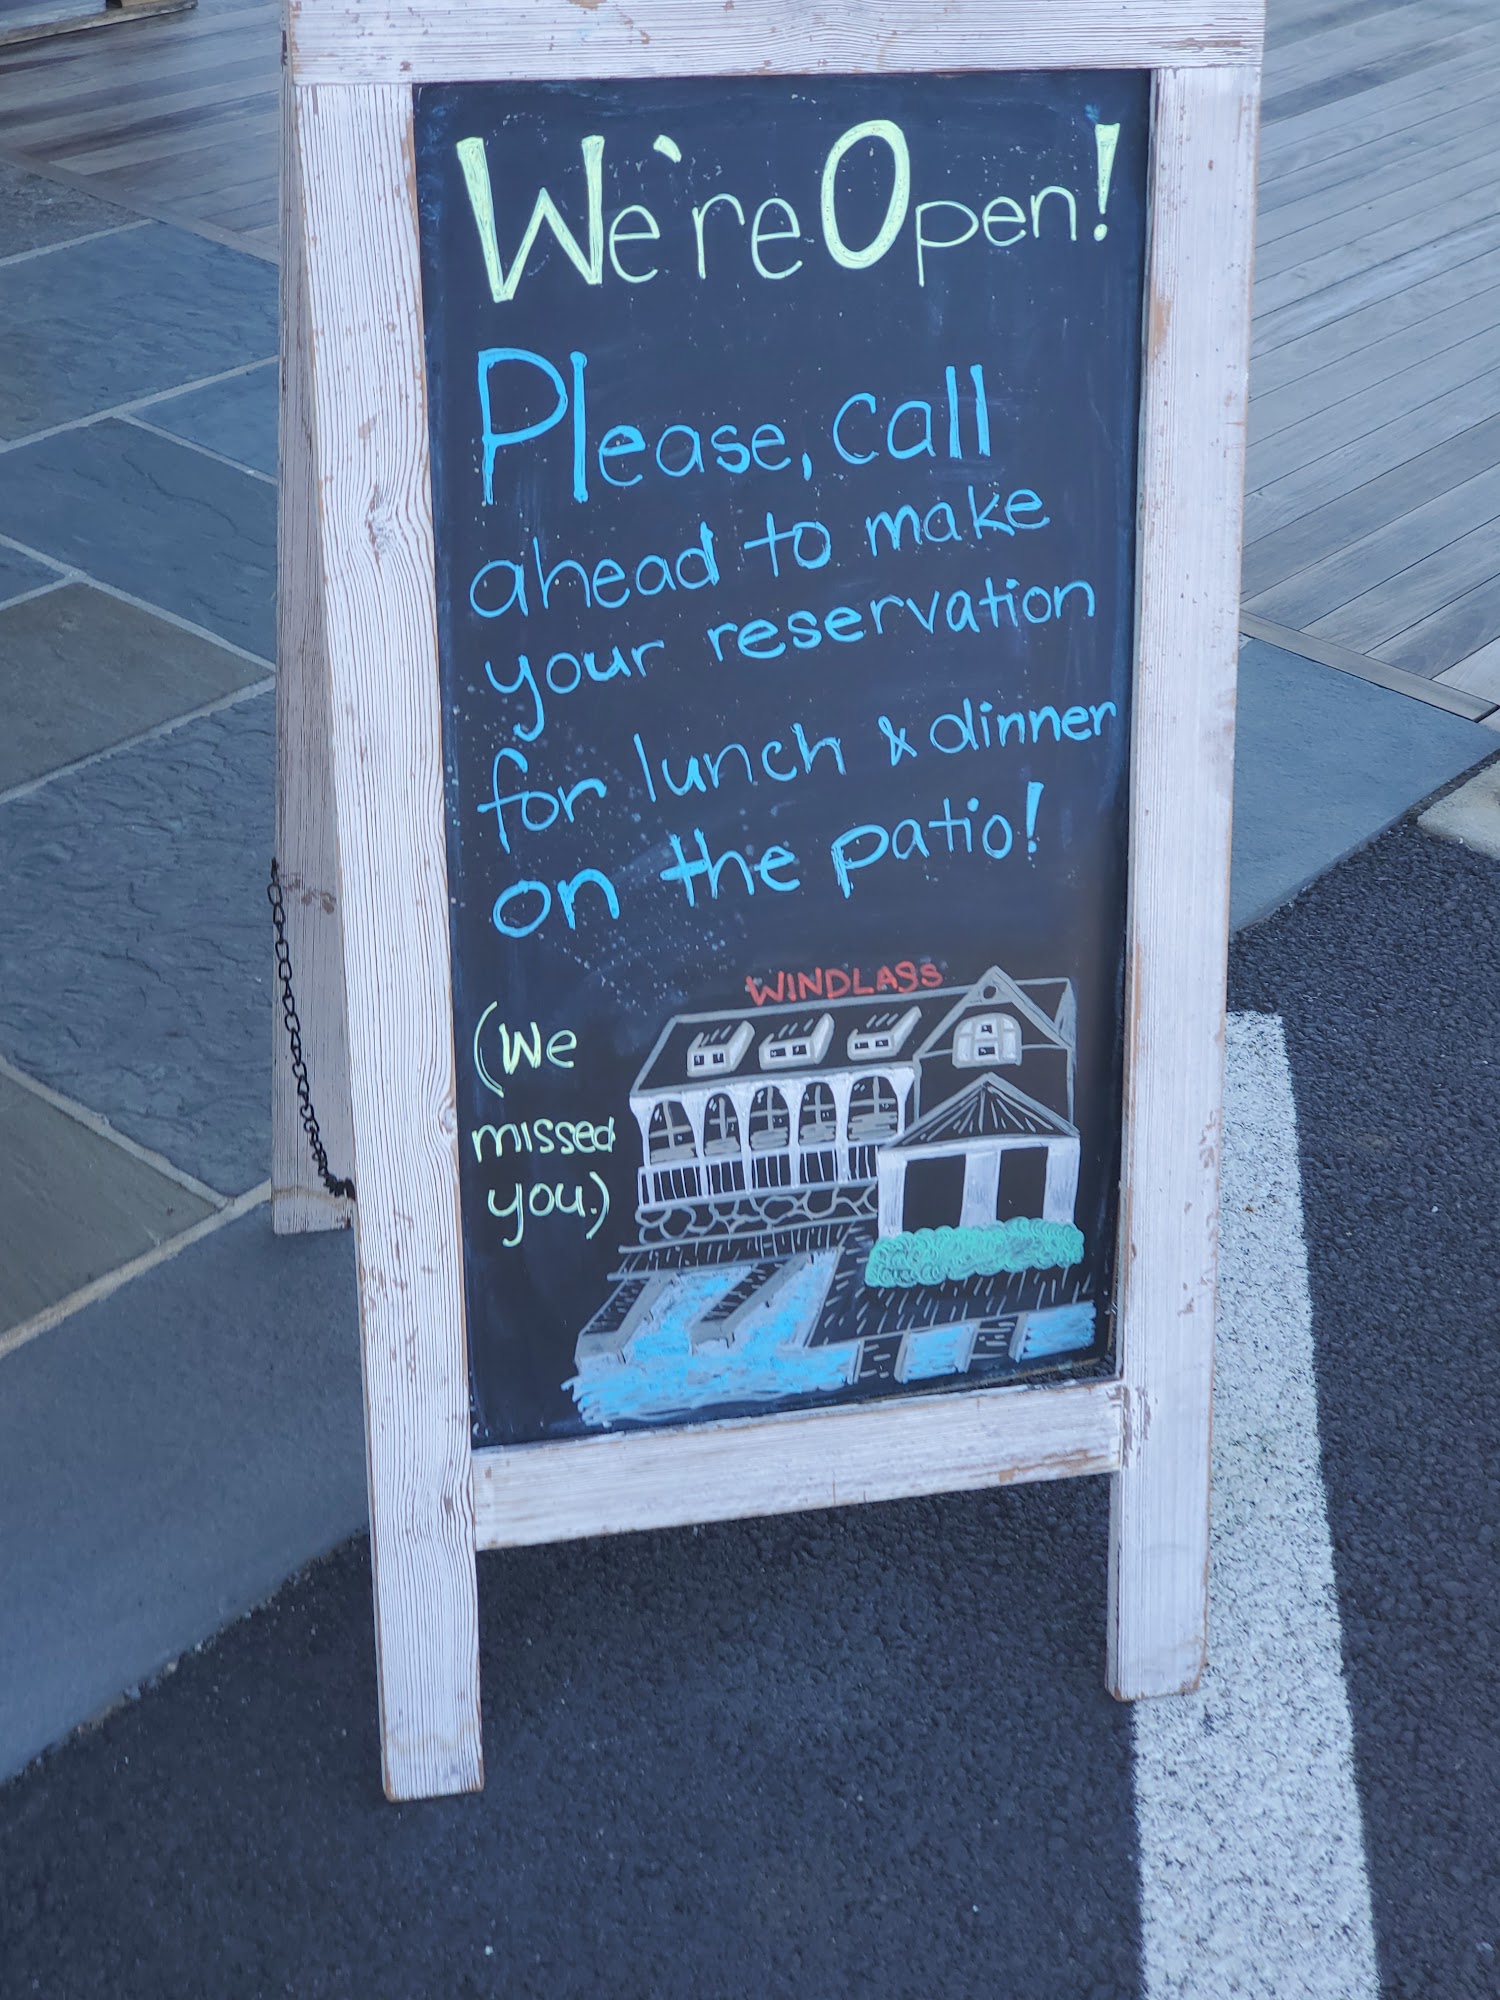 We're Open!
Please, call
ahead to make
your reservation
for lunch & dinner
on the patio!
WINDLASS
(We
missed
you.)